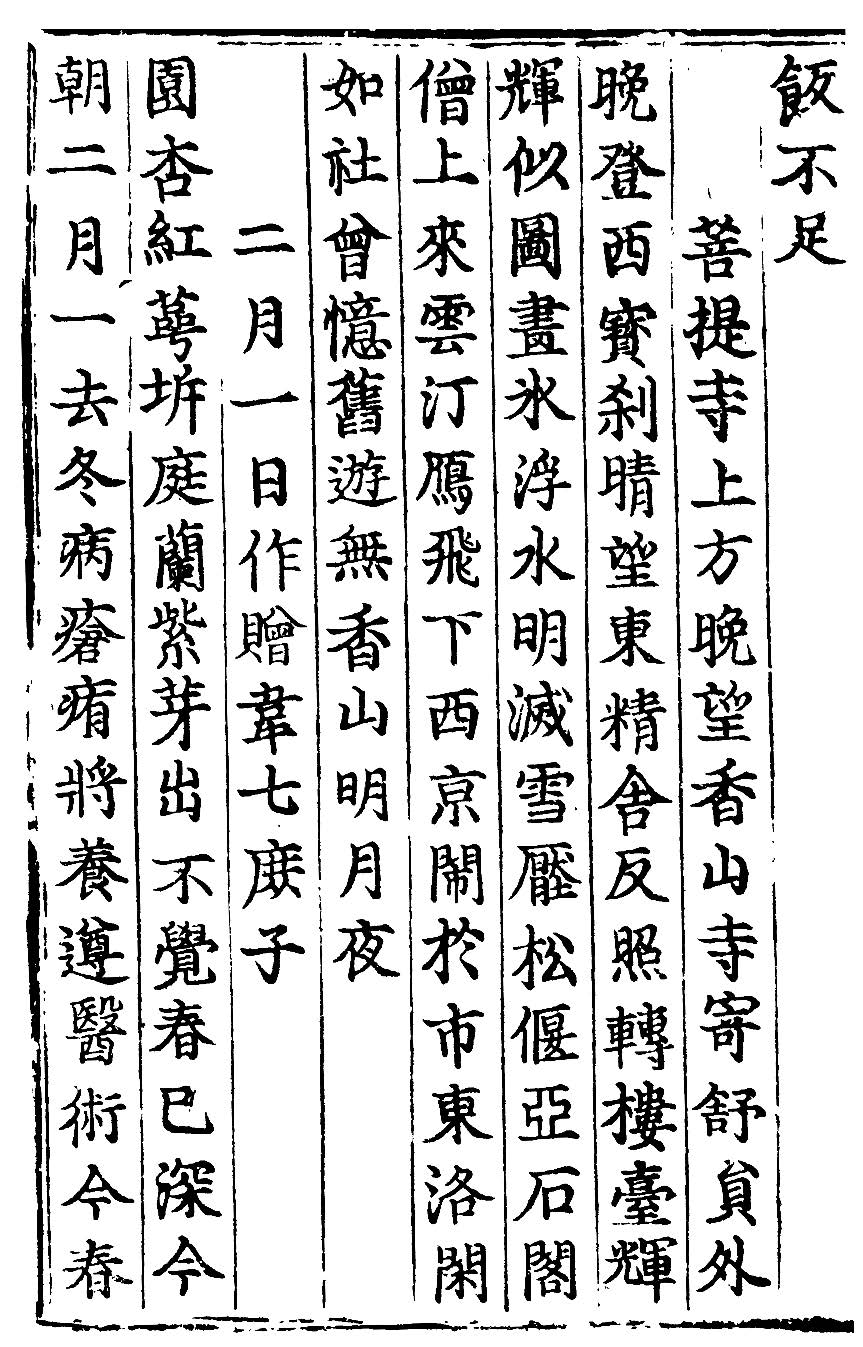 飯不足
菩提寺上方晚望香山寺寄舒員外
晚登西寳刹晴望東精舎反照轉樓臺輝
輝似圖畫氷浮水明滅雪壓松偃亞石閣
僧上來雲汀鴈飛下西京鬧於市東洛閑
如社曾憶舊遊無香山明月夜
二月一日作贈韋七庶子
園杏紅蕚坼庭蘭紫芽出不覺春已深今
朝二月一去冬病瘡痏將養遵醫術今春